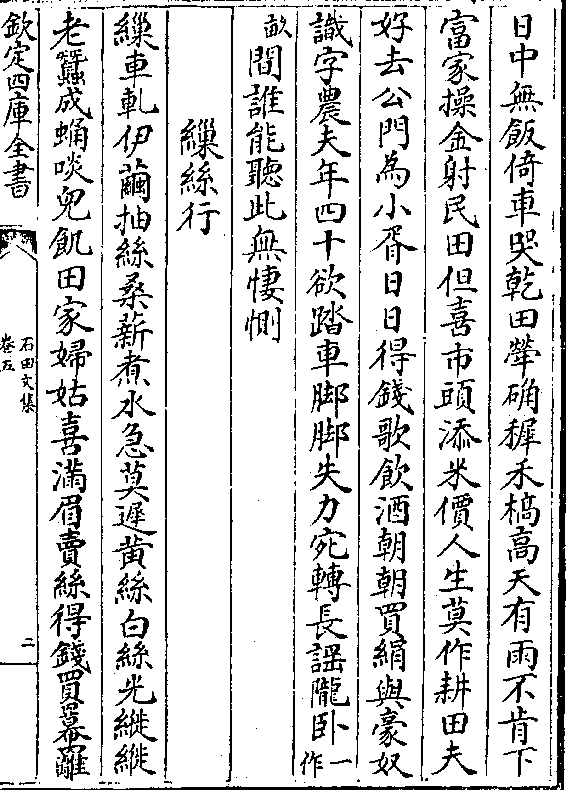 日中無飯倚車哭乾田犖确穉禾槁高天有雨不肯下
富家操金射民田但喜市頭添米價人生莫作耕田夫
好去公門為小胥日日得錢歌飲酒朝朝買絹與豪奴
識字農夫年四十欲踏車脚脚失力宛轉長謡隴卧一作
畝間誰能聽此無悽惻
繅絲行
繅車軋伊繭抽絲桑薪煮水急莫遲黄絲白絲光縰縰
老蠶成蛹啖兒飢田家婦姑喜滿眉賣絲得錢買羃䍦
欽定四庫全書
石田文集
卷五
二